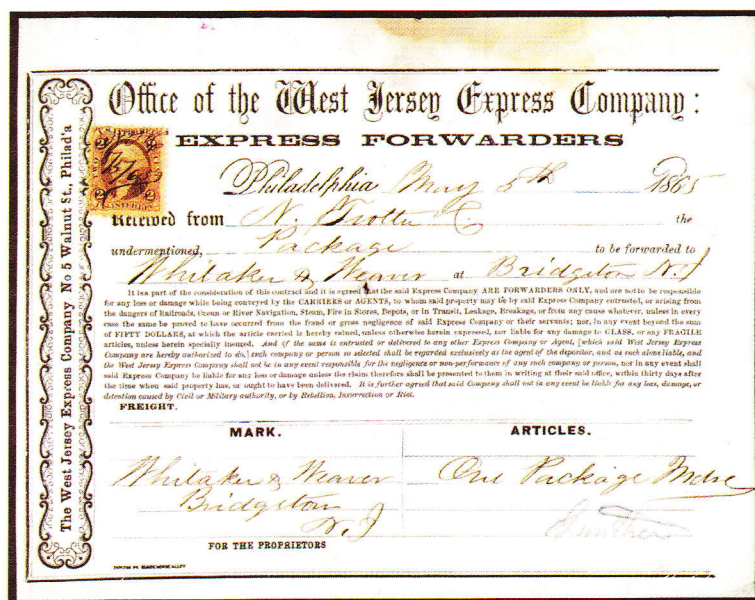 Office of the West Jersey Express Company:
EXPRESS FORWARDERS
Philadelphia May 5th 1865
Received from N. Trotter the
undermentioned, Package to be forwarded to
Whitaker & Weaver at Bridgeton N.J
It is a part of the consideration of this contract and it is agreed that the said Express Company ARE FORWARDERS ONLY, and are not to be responsible
for any loss or damage while being conveyed by the CARRIERS or AGENTS, to whom said property may be by said Express Company entrusted, or arising from
the dangers of Railroads, Ocean or River Navigation, Steam, Fire in Stores, Depots, or in Transit, Leakage, Breakage, or from any cause whatever, unless in every
case the same be proved to have occurred from the fraud or gross negligence of said Express Company or their servants; nor, in any event beyond the sum
of FIFTY DOLLARS, at which the article carried is hereby valued, unless otherwise herein expressed, nor liable for any damage to GLASS, or any FRAGILE
articles, unless herein specially insured. And if the same is entrusted or delivered to any other Express Company or Agent, [which said West Jersey Express
Company are hereby authorized to do,] such company or person so selected shall be regarded exclusively as the agent of the depositor, and as such alone liable, and
the West Jersey Express Company shall not be in any event responsible for the negligence or non-performance of any such company or person, nor in any event shall
said Express Company be liable for any loss or damage unless the claim therefore shall be presented to them in writing at their said office, within thirty days after
the time when said property has, or ought to have been delivered. It is further agreed that said Company shall not in any event be liable for any loss, damage, or
detention caused by Civil or Military authority, or by Rebellion, Insurrection or Riot.
FREIGHT.
MARK. ARTICLES.
Whitaker & Weaver One Package Mdse
Bridgeton
N.J
FOR THE PROPRIETORS
The West Jersey Express Company, No 5 Walnut St., Philad'a